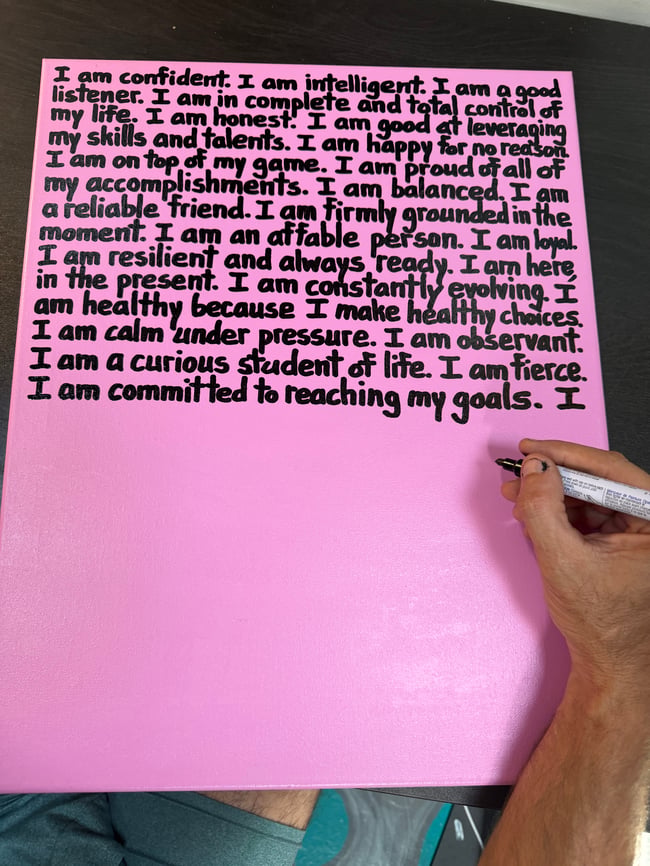 I am confident. I am intelligent. I am a good
listener. I am in complete and total control of
my life. I am honest. I am good at leveraging
my skills and talents. I am happy for no reason.
I am on top of my game. I am proud of all of
my accomplishments. I am balanced. I am
a reliable friend. I am firmly grounded in the
moment. I am an affable person. I am loyal.
I am resilient and always ready. I am here
in the present. I am constantly evolving. I
am healthy because I make healthy choices.
I am calm under pressure. I am observant.
I am a curious student of life. I am fierce.
I am committed to reaching my goals. I